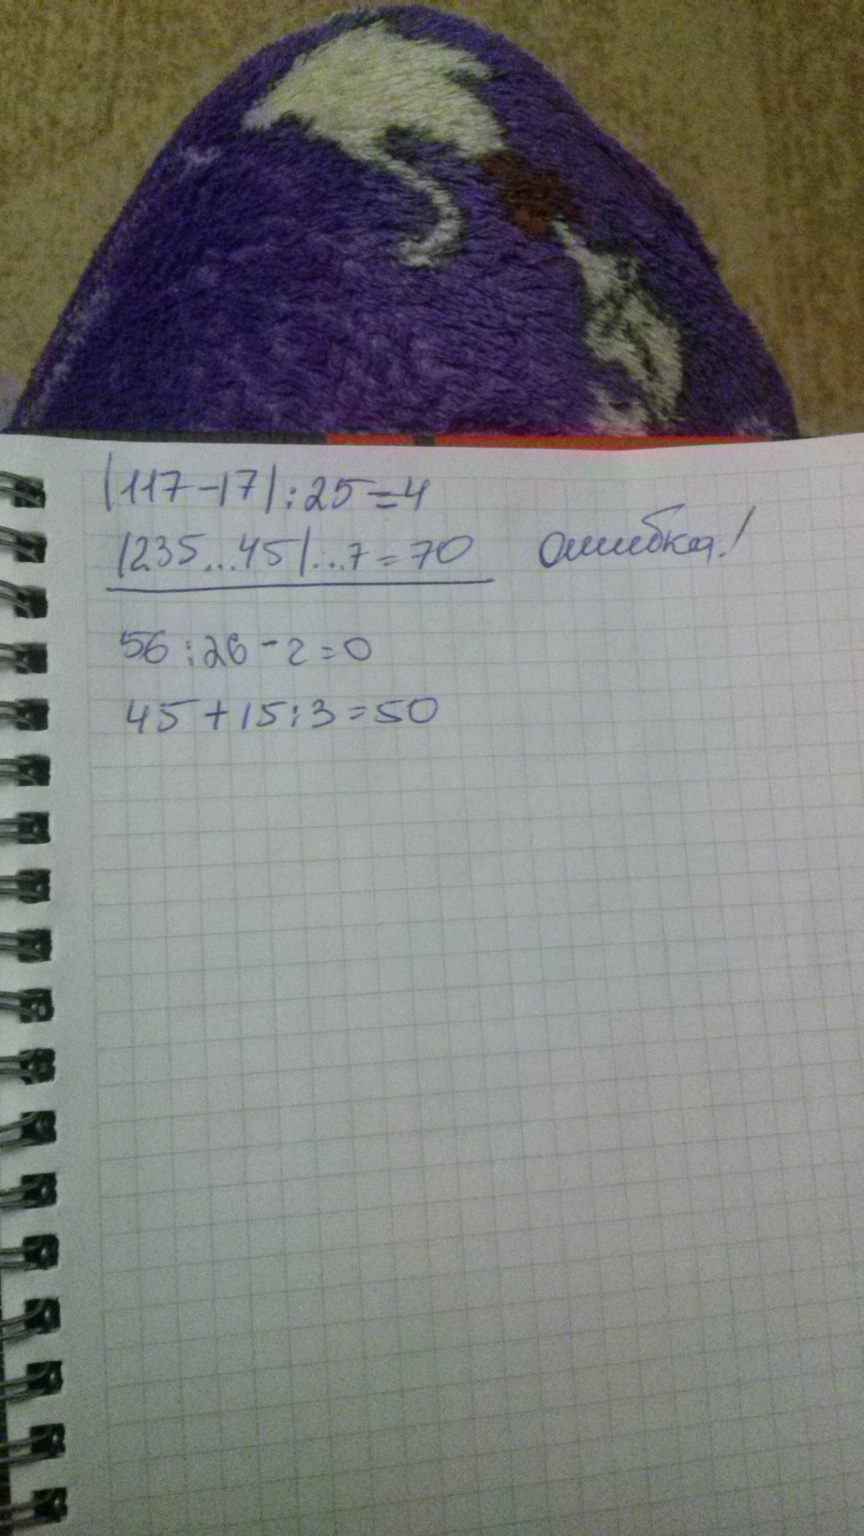 (117-17):25=4
(235...45)...7=70 Ошибка!
56:28-2=0
45+15:3=50